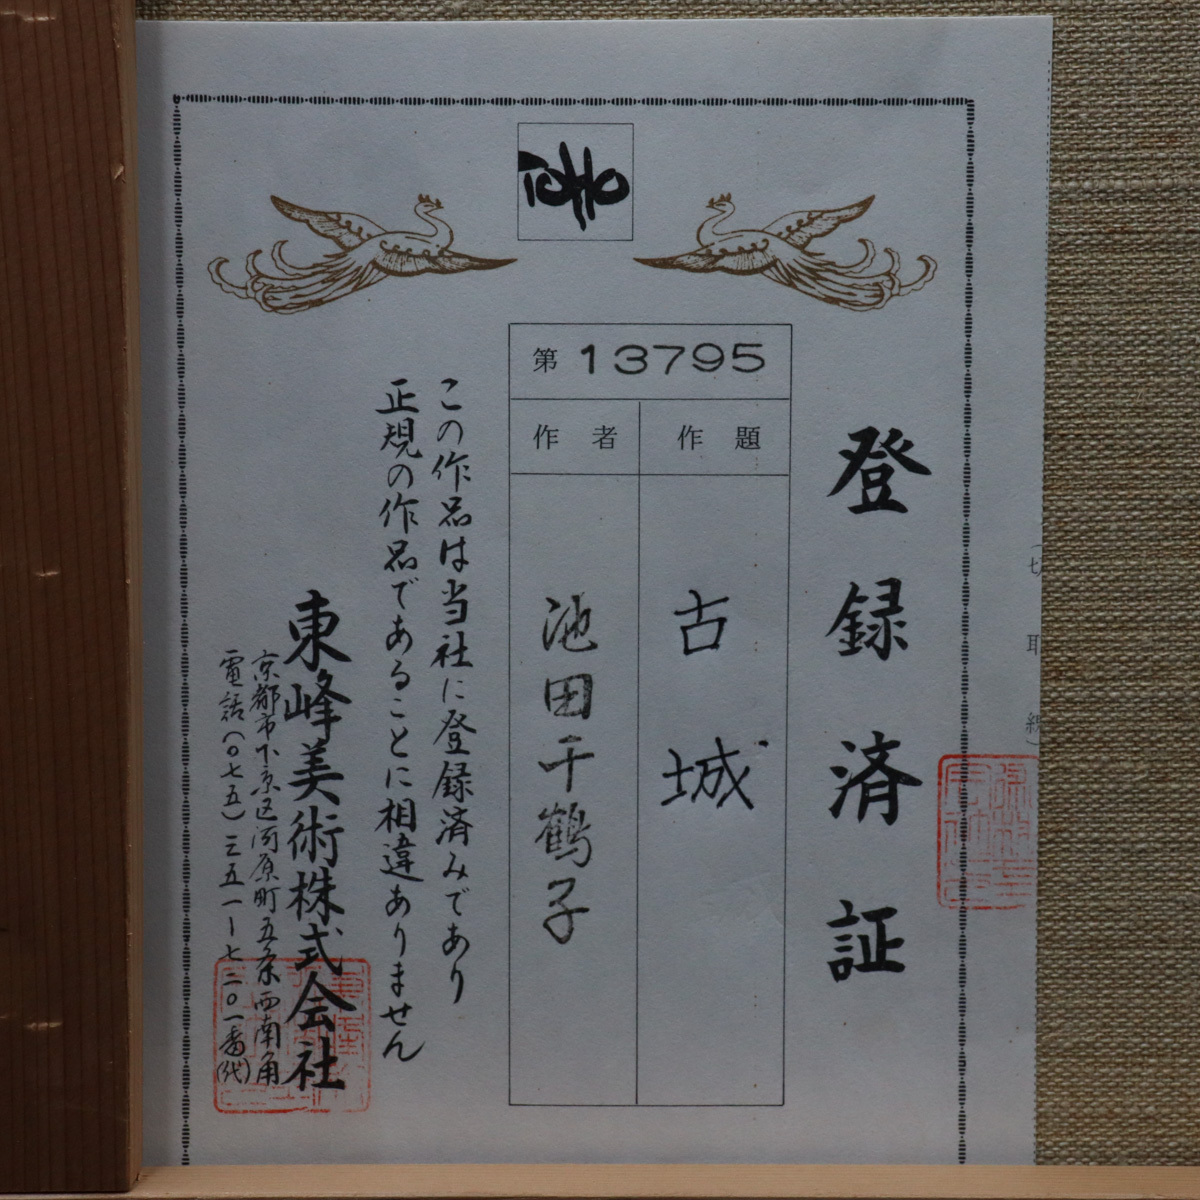 TOHO
登録済証
第 13795
作題
古城
作者
池田千鶴子
この作品は当社に登録済みであり
正規の作品であることに相違ありません
東峰美術株式会社
京都市下京区河原町五条西南角
電話(〇七五)三五一ー七二〇一番(代)
(切取線)